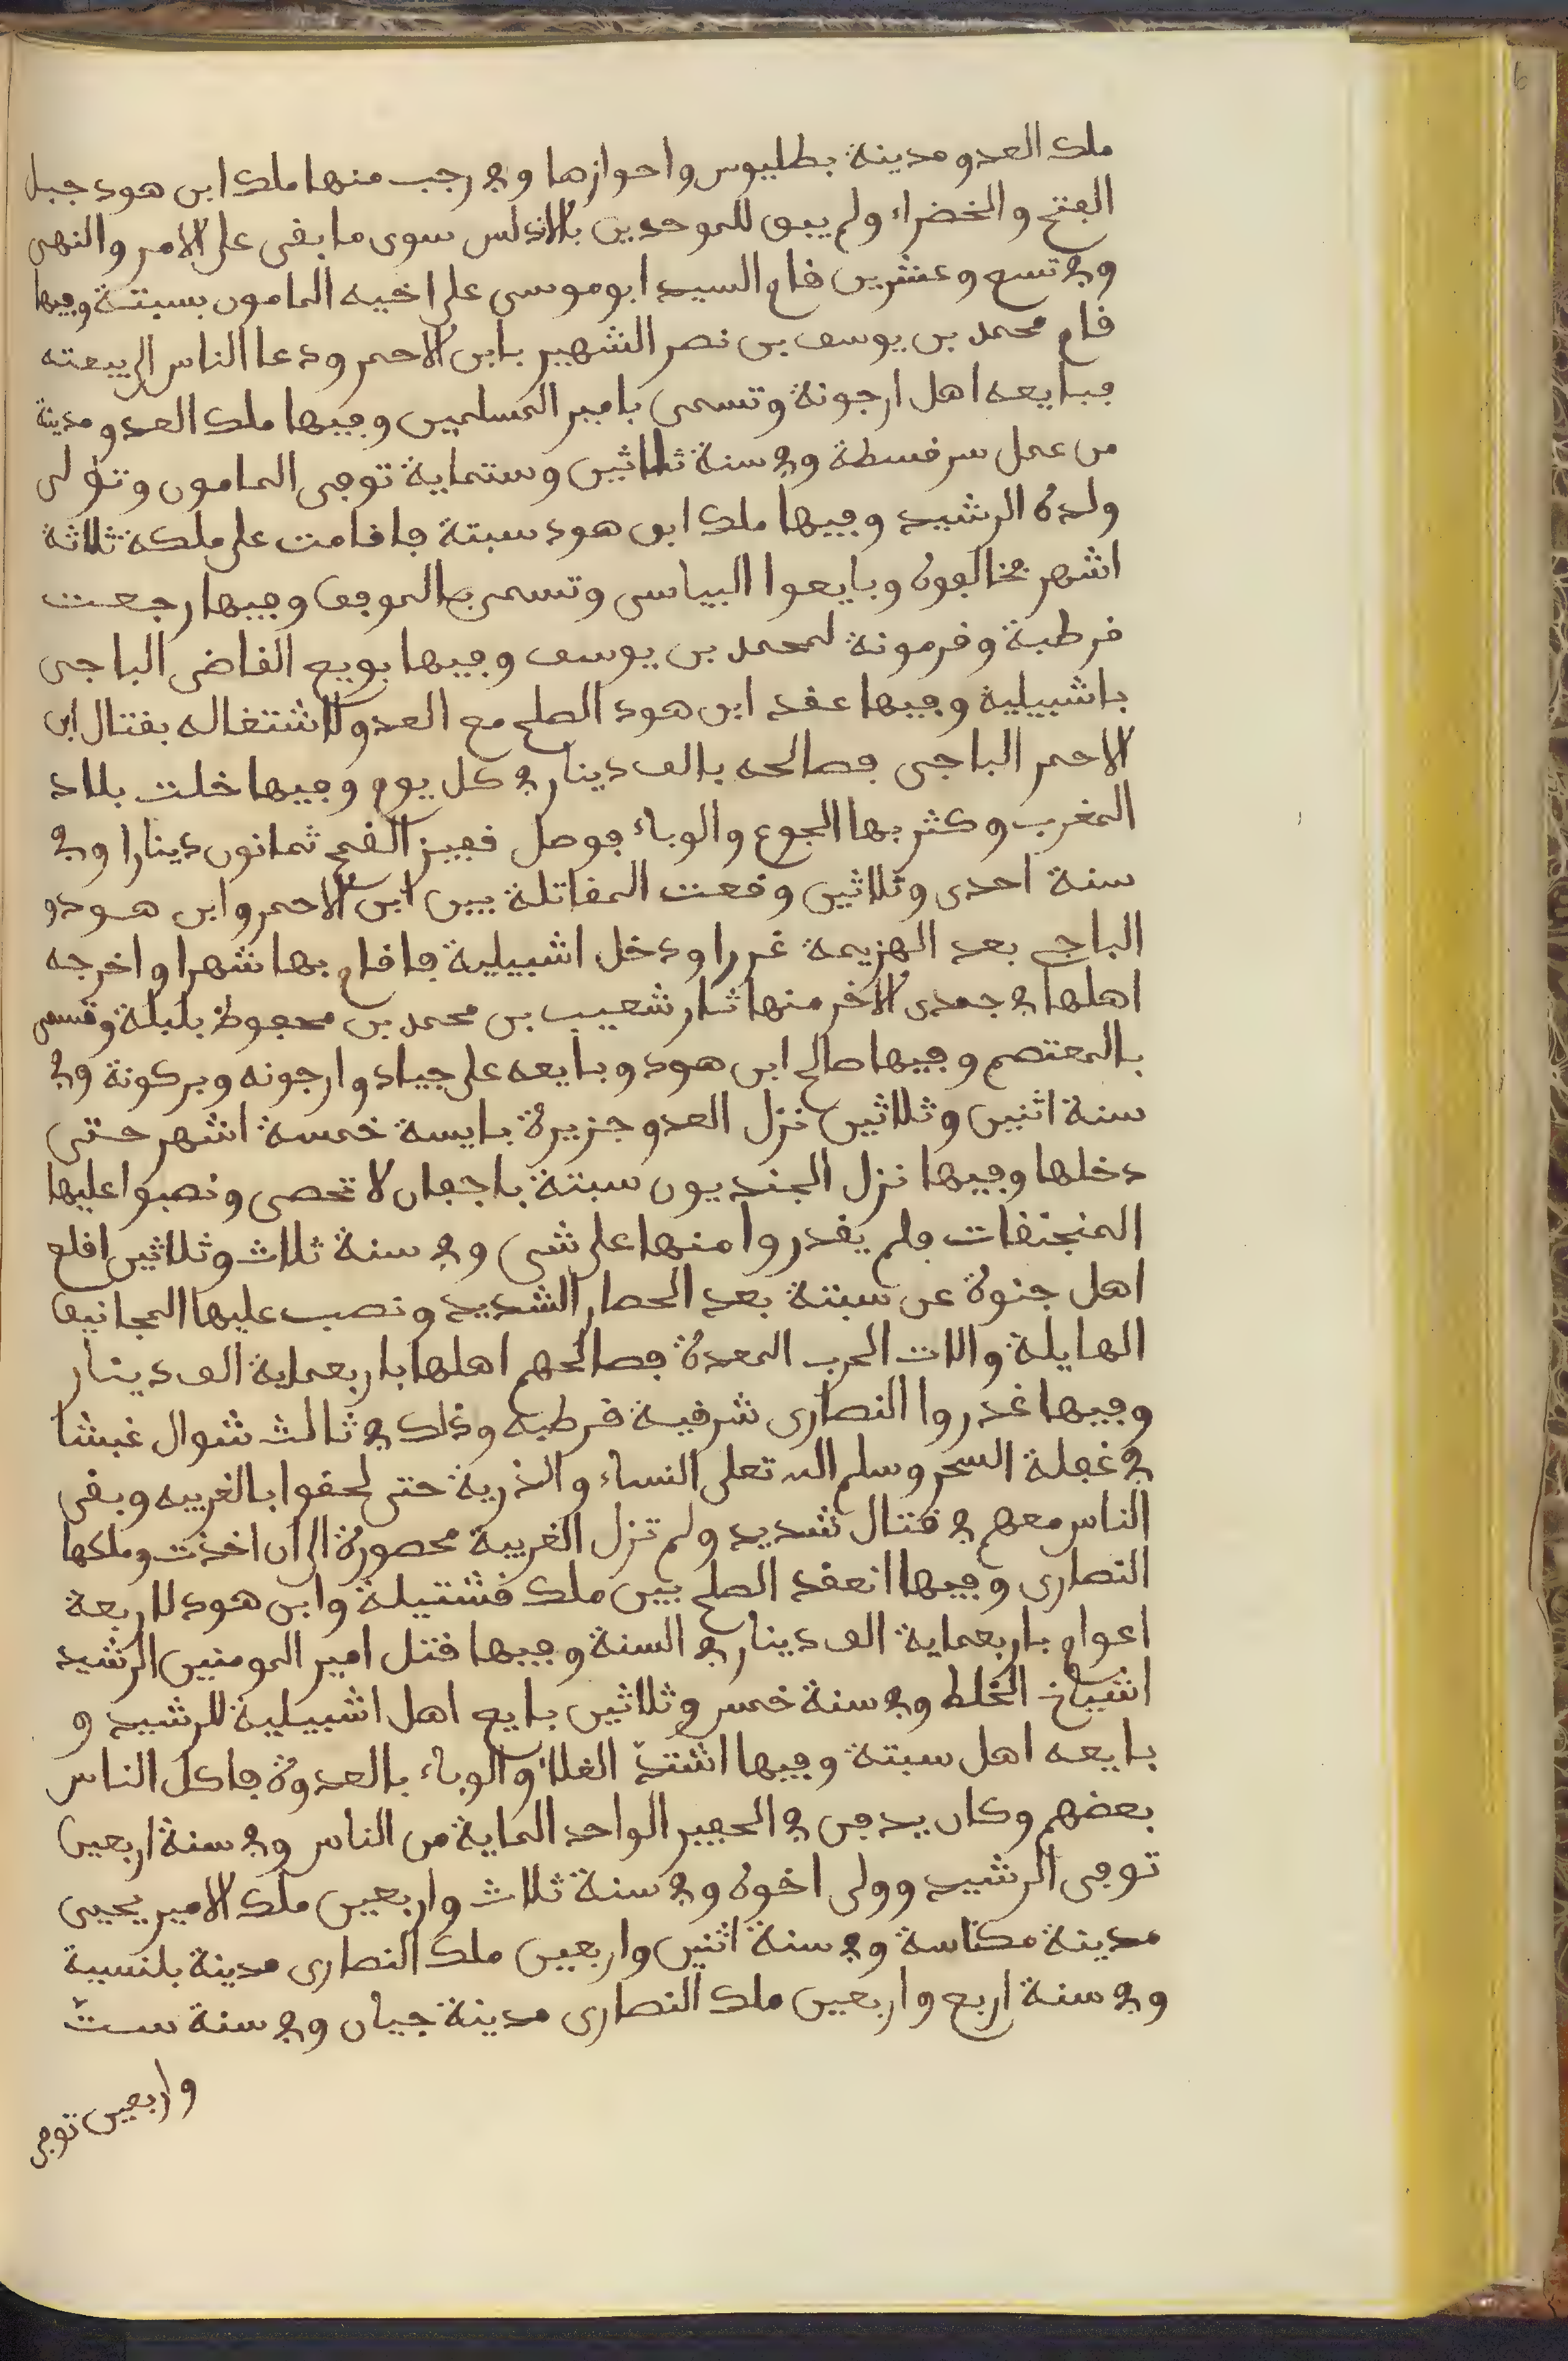 ملك العدو مدينة بطليوس واحوازها وفي رجب منها ملك ابن هود جبل
الفتح والخضراء ولم يبق للموحدين بالاندلس سوى ما بقى على الامر والنهى
وفي تسع وعشرين قام السيد ابو موسى على اخيه المامون بسبتة وفيها
قام محمد بن يوسف بن نصر الشهير بابن الاحمر ودعا الناس الى بيعته
فبايعه اهل ارجونة وتسمى بامير المسلمين وفيها ملك العدو مدينة
من عمل سرقسطة وفي سنة ثلاثين وستماية توفى المامون وتولى
ولده الرشيد وفيها ملك ابن هود سبتة فاقامت على ملكه ثلاثة
اشهر فخالفوه وبايعوا البياسى وتسمى بالموفق وفيها رجعت
قرطبة وقرمونة لمحمد بن يوسف وفيها بويع القاضى الباجى
باشبيلية وفيها عقد ابن هود الصلح مع العدو لاشتغاله بقتال ابن
الاحمر الباجى فصالحه بالف دينار في كل يوم وفيها خلت بلاد
المغرب وكثر بها الجوع والوباء فوصل قفيز القمح ثمانون دينارا وفي
سنة احدى وثلاثين وقعت المقاتلة بين ابن الاحمر وابن هود و
الباجى بعد الهزيمة غررا ودخل اشبيلية فاقام بها شهرا واخرجه
اهلها في جمدى الاخر منها ثار شعيب بن محمد بن محفوظ بلبلة وتسمى
بالمعتصم وفيها صالح ابن هود وبايعه على جياد وارجونه وبركونة وفي
سنة اثنين وثلاثين نزل العدو جزيرة بايسة خمسة اشهر حتى
دخلها وفيها نزل الجنديون سبتة باجفان لا تحصى ونصبوا عليها
المنجنقات فلم يقدروا منها على شى وفي سنة ثلاث وثلاثين اقلع
اهل جنوة عن سبتة بعد الحصار الشديد ونصب عليها المجانيق
الهايلة والات الحرب المعدة فصالحهم اهلها باربعماية الف دينار
وفيها غدروا النصارى شرقية قرطبه وذلك في ثالث شوال غبشا
في غفلة السحر وسلم الله تعلى النساء والذرية حتى لحقوا بالغربيه وبقى
الناس معهم في قتال شديد ولم تزل الغربية محصورة الى ان اخذت وملكها
النصارى وفيها انعقد الصلح بين ملك قشتيلة وابن هود لاربعة
اعوام باربعماية الف دينار في السنة وفيها قتل امير المومنين الرشيد
اشياخ الخلط وفي سنة خمس وثلاثين بايع اهل اشبيلية للرشيد و
بايعه اهل سبتة وفيها اشتدّ الغلاء والوباء بالعدوة فاكل الناس
بعضهم وكان يدفن في الحفير الواحد الماية من الناس وفي سنة اربعين
توفى الرشيد وولى اخوه وفي سنة ثلاث واربعين ملك الامير يحيى
مدينة مكناسة وفي سنة اثنين واربعين ملك النصارى مدينة بلنسية
وفي سنة اربع واربعين ملك النصارى مدينة جيان وفي سنة ستّ
واربعين توفى